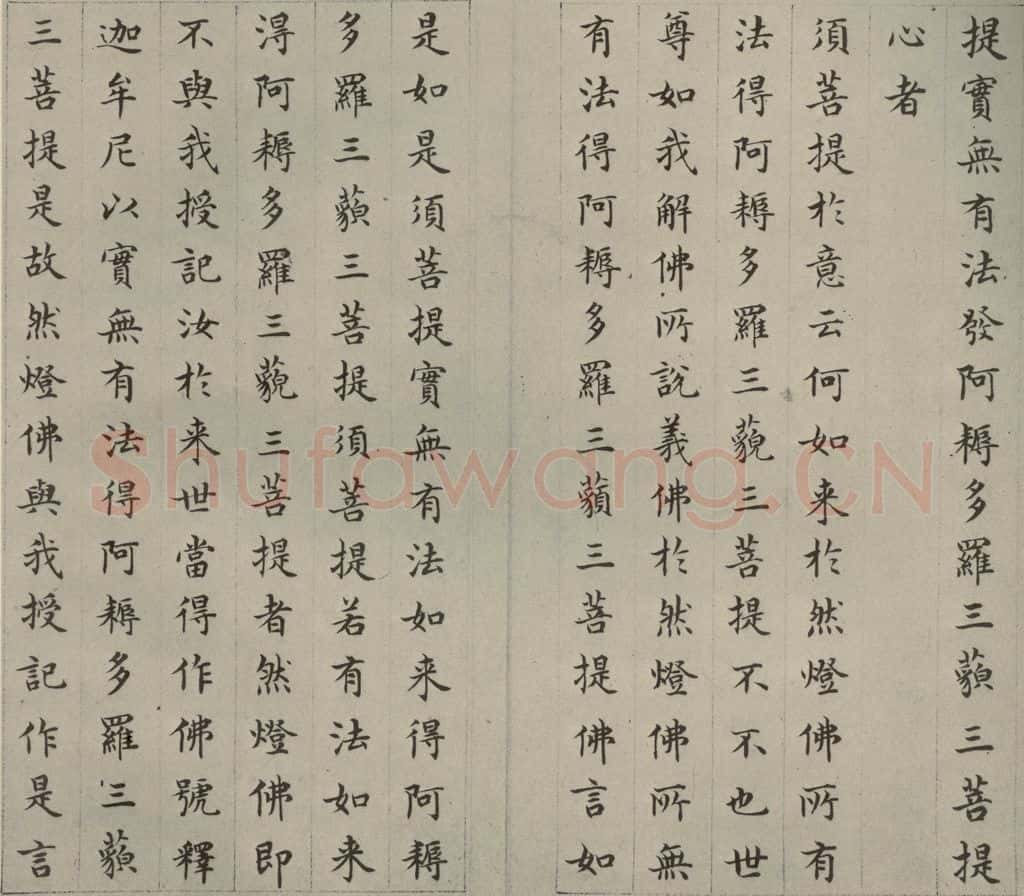 提實無有法發阿耨多羅三藐三菩提
心者
須菩提於意云何如来於然燈佛所有
法得阿耨多羅三藐三菩提不不也世
尊如我解佛所說義佛於然燈佛所無
有法得阿耨多羅三藐三菩提佛言如
是如是須菩提實無有法如来得阿耨
多羅三藐三菩提須菩提若有法如来
淂阿耨多羅三藐三菩提者然燈佛即
不與我授記汝於来世當得作佛號釋
迦牟尼以實無有法得阿耨多羅三藐
三菩提是故然燈佛與我授記作是言
Shufawang.CN